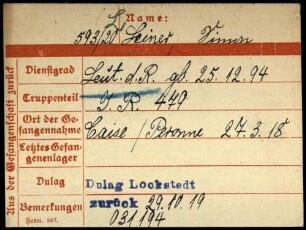 Name:
593/20 Leiner, Simon
Aus der Gefangenschaft zurück
Dienstgrad Leut. d. R. gb. 25.12.94
Truppenteil I. R. 479
Ort der Ge-
fangennahme / Peronne 27.3.18
Letztes Gefan-
genenlager
Dulag Dulag Lockstedt
Bemerkungen zurück 29.10.19
031194
Form.